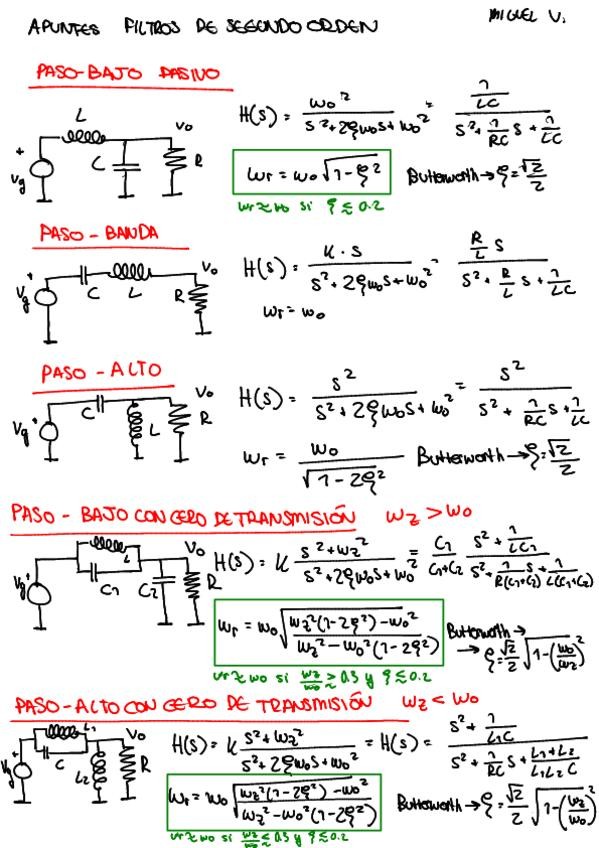 APUNTES FILTROS DE SEGUNDO ORDEN
MIGUEL V.
PASO-BAJO PASIVO
L
C
R
Vo
+
Vg
H(s) = ωo² / (s² + 2ξωos + ωo²) = (1/LC) / (s² + (1/RC)s + 1/LC)
ωr = ωo √(1-ξ²)
Butterworth → ξ = √2/2
ωr ≈ ωo si ξ ≲ 0.2
PASO - BANDA
Vg
+
C
L
R
Vo
H(s) = K·s / (s² + 2ξωos + ωo²) = (R/L)s / (s² + (R/L)s + 1/LC)
ωr = ωo
PASO - ALTO
Vg
+
C
L
R
Vo
H(s) = s² / (s² + 2ξωos + ωo²) = s² / (s² + (1/RC)s + 1/LC)
ωr = ωo / √(1-2ξ²)
Butterworth → ξ = √2/2
PASO - BAJO CON CERO DE TRANSMISIÓN ωz > ωo
Vg
+
L
C1
C2
R
Vo
H(s) = K (s² + ωz²) / (s² + 2ξωos + ωo²) = C1/(C1+C2) (s² + 1/LC1) / (s² + (1/R(C1+C2))s + 1/L(C1+C2))
ωr = ωo √((ωz²(1-2ξ²) - ωo²) / (ωz² - ωo²(1-2ξ²)))
Butterworth →
→ ξ = √2/2 √(1-(ωo/ωz)²)
ωr ≈ ωo si ωz/ωo ≥ 0.5 y ξ ≲ 0.2
PASO-ALTO CON CERO DE TRANSMISIÓN ωz < ωo
Vg
+
L1
C
L2
R
Vo
H(s) = K (s² + ωz²) / (s² + 2ξωos + ωo²) = H(s) = (s² + 1/L1C) / (s² + (1/RC)s + (L1+L2)/(L1L2C))
ωr = ωo √((ωz²(1-2ξ²) - ωo²) / (ωz² - ωo²(1-2ξ²)))
Butterworth → ξ = √2/2 √(1-(ωz/ωo)²)
ωr ≈ ωo si ωz/ωo ≤ 0.5 y ξ ≲ 0.2